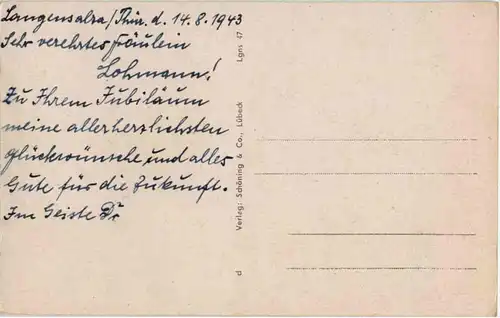 Langensalza/Thür. d. 14.8.1943
Sehr verehrtes Fräulein
Lohmann!
Zu Ihrem Jubiläum
meine allerherzlichsten
Glückwünsche und alles
Gute für die Zukunft.
Im Geiste
Verlag: Schöning & Co., Lübeck Lgns 47
d